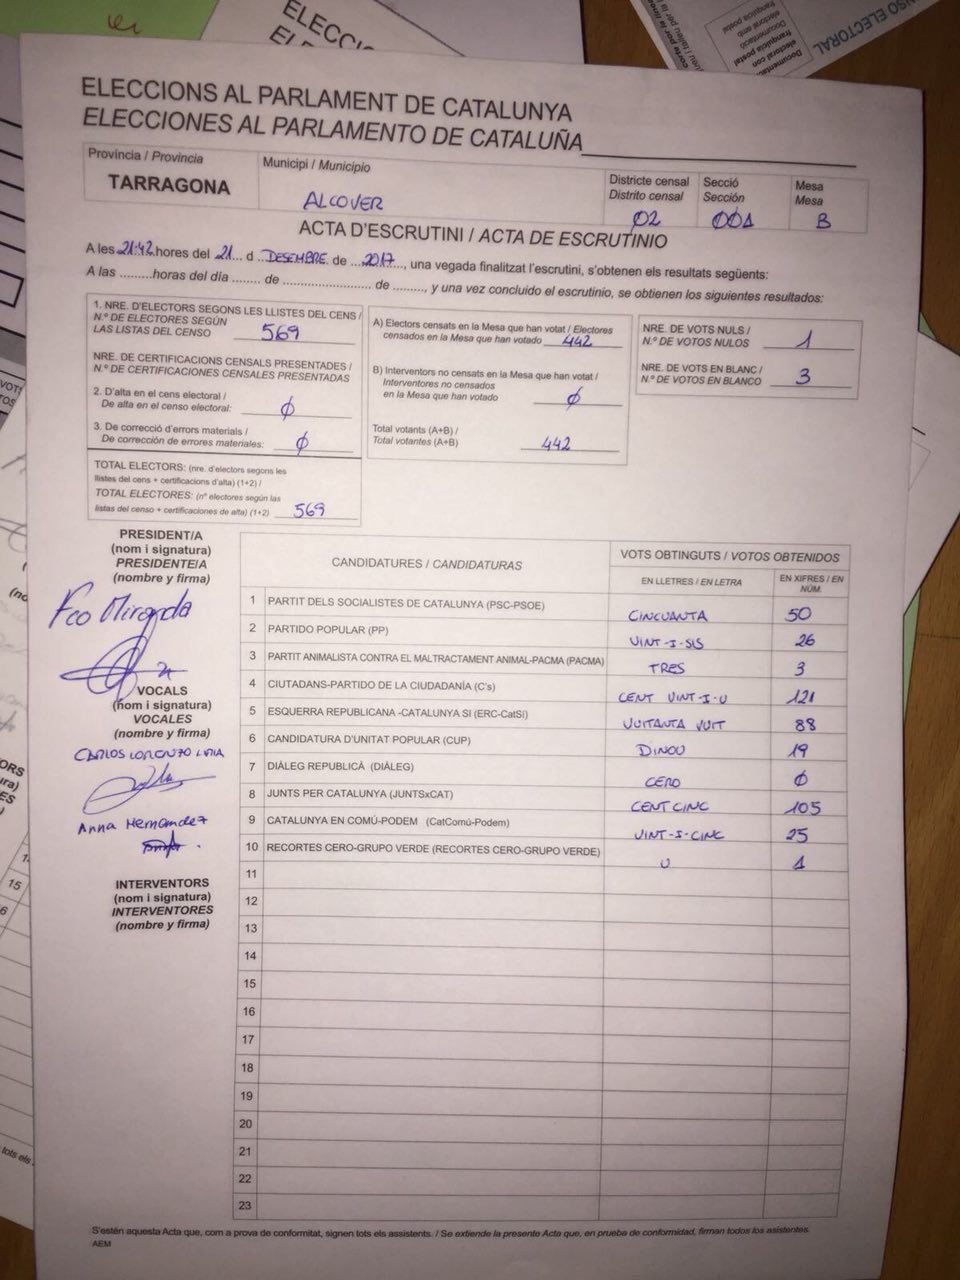 ELECCIONS AL PARLAMENT DE CATALUNYA
ELECCIONES AL PARLAMENTO DE CATALUÑA
Provincia / Provincia
TARRAGONA
Municipi / Municipio
ALCOVER
Districte censal
Distrito censal
02
Secció
Sección
001
Mesa
Mesa
B
ACTA D'ESCRUTINI / ACTA DE ESCRUTINIO
A les 21:42 hores del 21 d DESEMBRE de 2017, una vegada finalitzat l'escrutini, s'obtenen els resultats següents:
A las .........horas del día ........ de ............................... de ........., y una vez concluido el escrutinio, se obtienen los siguientes resultados:
1. NRE. D'ELECTORS SEGONS LES LLISTES DEL CENS /
N.º DE ELECTORES SEGÚN
LAS LISTAS DEL CENSO 569
NRE. DE CERTIFICACIONS CENSALS PRESENTADES /
N.º DE CERTIFICACIONES CENSALES PRESENTADAS
2. D'alta en el cens electoral /
De alta en el censo electoral: Ø
3. De correcció d'errors materials /
De corrección de errores materiales: Ø
TOTAL ELECTORS: (nre. d'electors segons les
llistes del cens + certificacions d'alta) (1+2) /
TOTAL ELECTORES: (nº electores según las
listas del censo + certificaciones de alta) (1+2) 569
A) Electors censats en la Mesa que han votat / Electores
censados en la Mesa que han votado 442
B) Interventors no censats en la Mesa que han votat /
Interventores no censados
en la Mesa que han votado Ø
Total votants (A+B) /
Total votantes (A+B) 442
NRE. DE VOTS NULS /
N.º DE VOTOS NULOS 1
NRE. DE VOTS EN BLANC /
N.º DE VOTOS EN BLANCO 3
PRESIDENT/A
(nom i signatura)
PRESIDENTE/A
(nombre y firma)
Fco Miranda
VOCALS
(nom i signatura)
VOCALES
(nombre y firma)
CARLOS LORENZO
Anna Hernandez
INTERVENTORS
(nom i signatura)
INTERVENTORES
(nombre y firma)
CANDIDATURES / CANDIDATURAS
VOTS OBTINGUTS / VOTOS OBTENIDOS
EN LLETRES / EN LETRA
EN XIFRES / EN NÚM.
1 PARTIT DELS SOCIALISTES DE CATALUNYA (PSC-PSOE) CINCUANTA 50
2 PARTIDO POPULAR (PP) VINT-I-SIS 26
3 PARTIT ANIMALISTA CONTRA EL MALTRACTAMENT ANIMAL-PACMA (PACMA) TRES 3
4 CIUTADANS-PARTIDO DE LA CIUDADANÍA (C's) CENT VINT-I-U 121
5 ESQUERRA REPUBLICANA -CATALUNYA SÍ (ERC-CatSí) VUITANTA VUIT 88
6 CANDIDATURA D'UNITAT POPULAR (CUP) DINOU 19
7 DIÀLEG REPUBLICÀ (DIÀLEG) CERO Ø
8 JUNTS PER CATALUNYA (JUNTSxCAT) CENT CINC 105
9 CATALUNYA EN COMÚ-PODEM (CatComú-Podem) VINT-I-CINC 25
10 RECORTES CERO-GRUPO VERDE (RECORTES CERO-GRUPO VERDE) U 1
11
12
13
14
15
16
17
18
19
20
21
22
23
S'estén aquesta Acta que, com a prova de conformitat, signen tots els assistents. / Se extiende la presente Acta que, en prueba de conformidad, firman todos los asistentes.
AEM